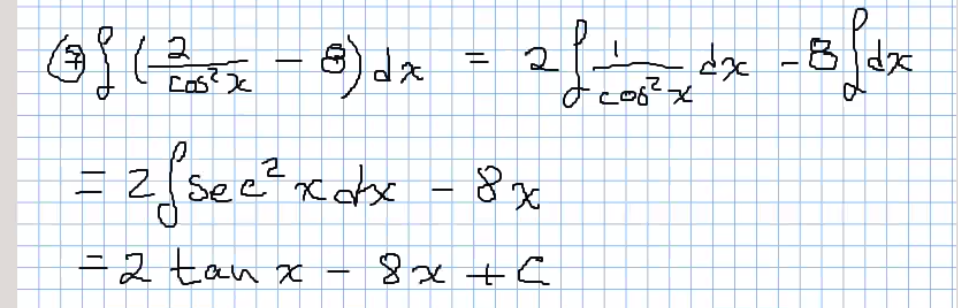 ⑦ ∫ (2/cos²x − 8) dx = 2 ∫ 1/cos²x dx − 8 ∫ dx
= 2 ∫ sec²x dx − 8x
= 2 tan x − 8x + C